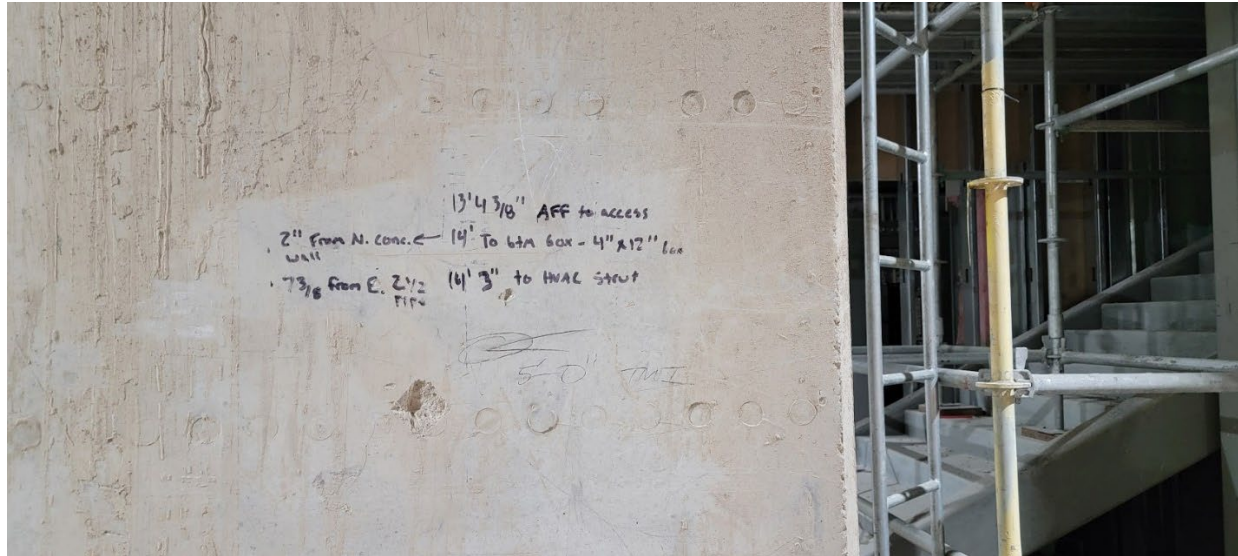 13'4 3/8" AFF to access
. 2" From N. conc. ← 14' To btm box - 4" x 12" box
wall
. 7 3/8 from E. 2 1/2 14' 3" to HVAC Strut
PIPE
5'-0" TMI